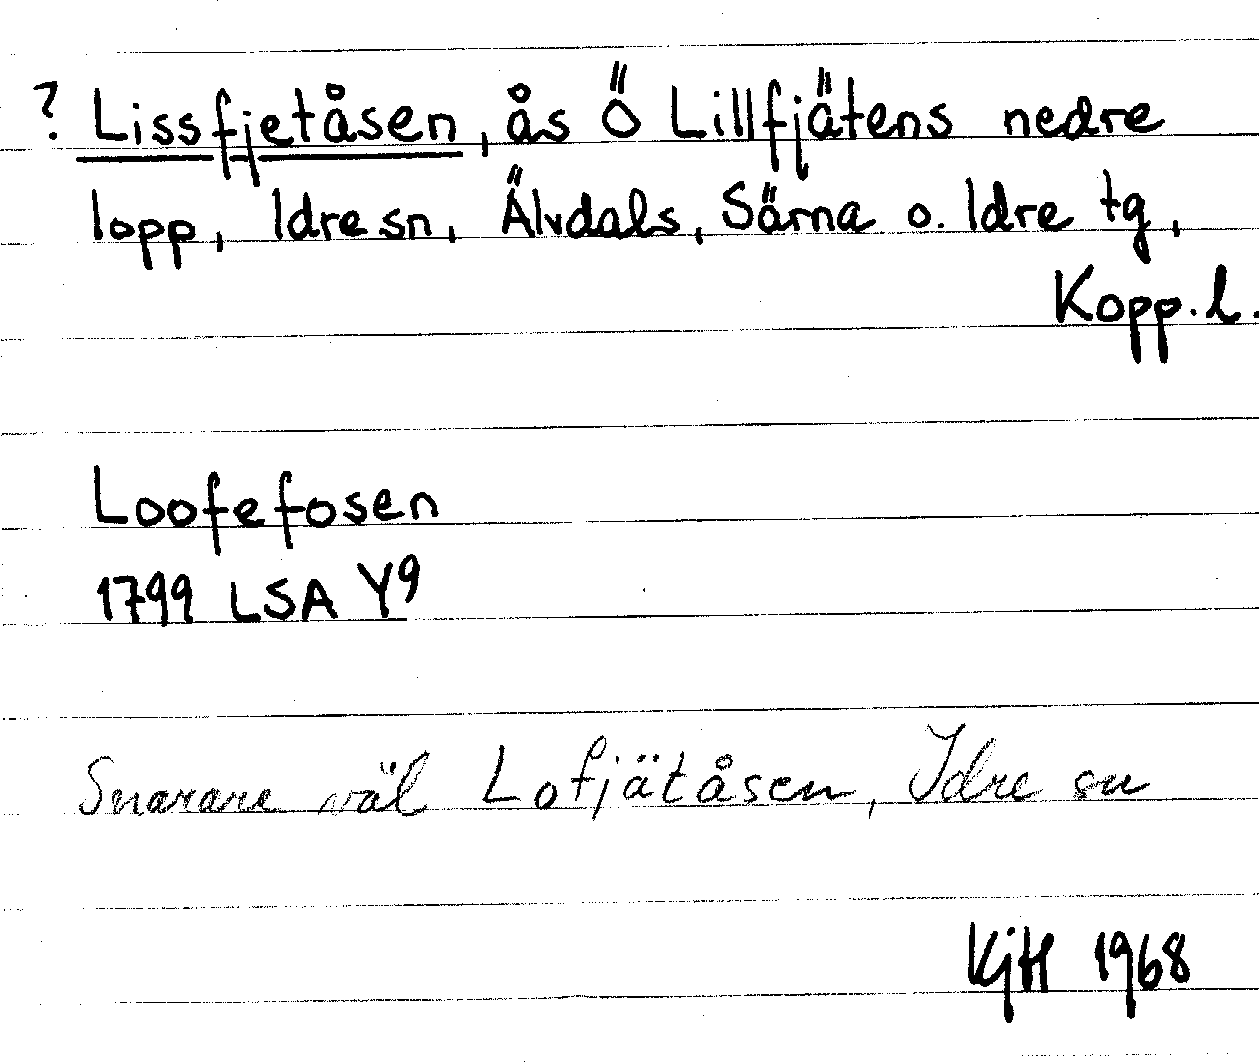 ? Lissfjetåsen, ås Ö Lillfjätens nedre
lopp, Idre sn, Älvdals, Särna o. Idre tg,
Kopp. l.
Loofefosen
1799 LSA Y9
Snarare väl Lofjätåsen, Idre sn
KjH 1968